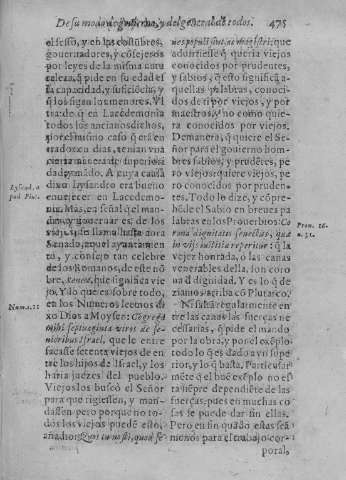 De su modo de gouierno, y del general de todos. 475
el sesso, y en las costũbres,
gouernadores, y cõsejeros
por leyes de la misma natu
raleza, q̃ pide en su edad el
la capacidad, y suficiẽcia, y
q̃ los sigan los menores. Y l
tra de q̃ en Lacedemonia
todos los ancianos dichos,
por el mismo caso q̃ era
trados en dias, tenian vna
cierta manera de superiori
dad, y mãdo. A cuya causa
dixo Lysandro era bueno
enuejecer en Lacedemo-
nia. Mas, era señal q̃ el man-
dar, y gouernar es de los
viejos, que llama hasta aora
Senado, aquel ayuntamiẽ
to, y consejo tan celebre
de los Romanos, de este nõ
bre, Senex, que significa vie
jo. Y lo que es sobre todo,
en los Numeros leemos di
xo Dios a Moysen: Cogrega
mihi septuaginta viros de se-
nioribus Israel, que le entre
sacasse setenta viejos de en
tre los hijos de Israel, y los
haria juezes del pueblo.
Viejos los buscò el Señor
para que rigiessen, y man-
dassen pero porque no to-
dos los viejos puedẽ esto,
añadio:
Lysand. a
pud Plut.
Num. 11
nes populi sint, ac magistri, que
aduirtiendo q̃ queria viejos
conocidos por prudentes,
y sabios, q̃ esto significã a-
quellas palabras, conoci-
dos de ti por viejos, y por
maestros, y no como quie-
ra conocidos por viejos.
Demanera, q̃ quiere el Se-
ñor para el gouierno hom-
bres sabios, y prudẽtes, pe
ro viejos: quiere viejos, pe
ro conocidos por pruden-
tes. Todo lo dize, y cõpre-
hẽde el Sabio en breues pa
labras en los Prouerbios: Co
rona dignitatis senectus, quæ
in vijs iustitiæ reperitur: q̃ la
vejez honrada, o las canas
venerables della, son coro
na d̃ dignidad. Y es lo q̃ de
ziamos arriba cõ Plutarco,
Ni serã regularmente en
tre las canas las fuerças ne
cessarias, q̃ pide el mando
por la obra, y por el exẽplo:
todo lo q̃ es dado a vn supe
rior, y lo q̃ basta. Particular
mẽte q̃ el buẽ exẽplo no es
ta siẽpre dependiẽte de las
fuerças, pues en muchas co
sas se puede dar sin ellas.
Pero en fin quãdo estas seã
menos para el trabajo cor-
poral,
Prou. 16.
n. 31.